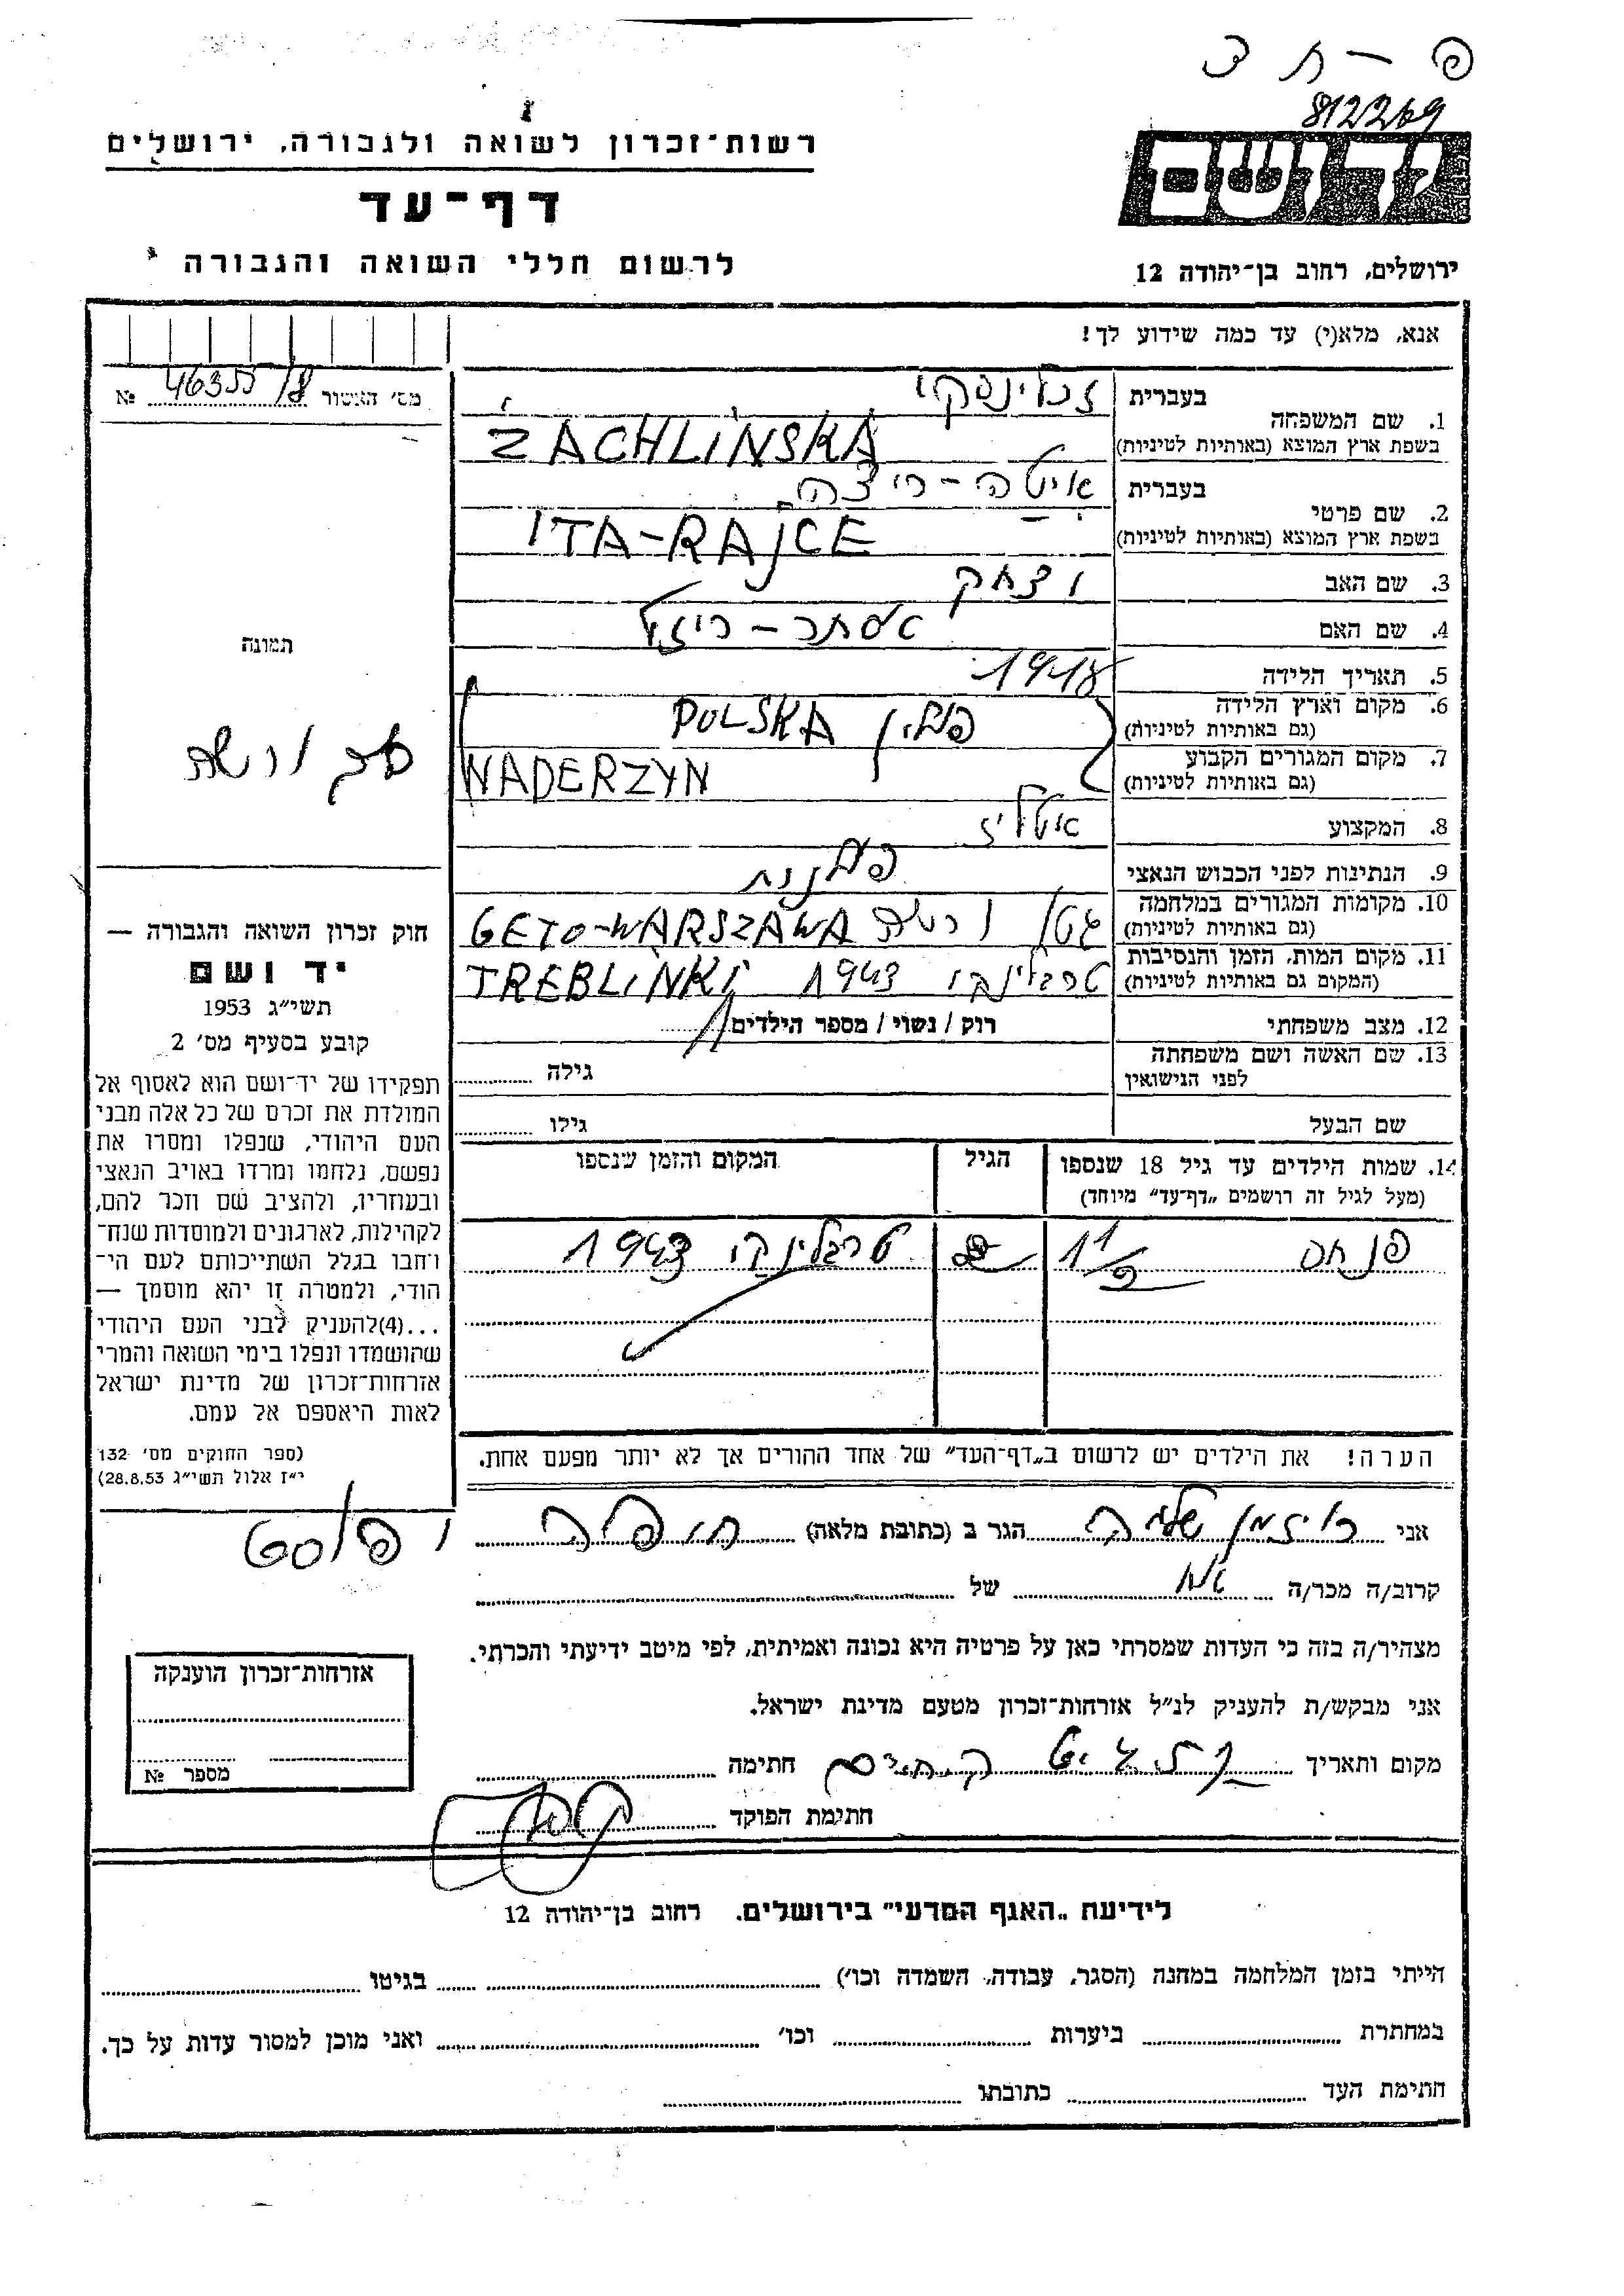 פ – ח צ
812269
רשות־זכרון לשואה ולגבורה, ירושלים
ידושם
דף־עד
לרשום חללי השואה והגבורה
ירושלים, רחוב בן־יהודה 12
אנא, מלא(י) עד כמה שידוע לך!
מס׳ האשור 46355/8 №
1. שם המשפחה
בעברית זכלינסקי
בשפת ארץ המוצא (באותיות לטיניות) ZACHLINSKA
2. שם פרטי
בעברית איטה–ריצה
בשפת ארץ המוצא (באותיות לטיניות) ITA-RAJCE
3. שם האב יצחק
4. שם האם אסתר–ריזל
תמונה
5. תאריך הלידה 1918
6. מקום וארץ הלידה
(גם באותיות לטיניות) פולין POLSKA
7. מקום המגורים הקבוע
(גם באותיות לטיניות) NADERZYN
8. המקצוע
9. הנתינות לפני הכבוש הנאצי פולנית
10. מקומות המגורים במלחמה
(גם באותיות לטיניות) גטו ורשה GETO-WARSZAWA
11. מקום המות, הזמן והנסיבות
(המקום גם באותיות לטיניות) טרבלינקי 1943 TREBLINKI
12. מצב משפחתי רוק / נשוי / מספר הילדים 1
13. שם האשה ושם משפחתה
לפני הנישואין גילה
שם הבעל גילו
14. שמות הילדים עד גיל 18 שנספו הגיל המקום והזמן שנספו
(מעל לגיל זה רושמים „דף־עד״ מיוחד)
פנחס 1 1/2 טרבלינקי 1943
הערה! את הילדים יש לרשום ב„דף־העד״ של אחד ההורים אך לא יותר מפעם אחת.
חוק זכרון השואה והגבורה —
יד ושם
תשי״ג 1953
קובע בסעיף מס׳ 2
תפקידו של יד־ושם הוא לאסוף אל
המולדת את זכרם של כל אלה מבני
העם היהודי, שנפלו ומסרו את
נפשם, נלחמו ומרדו באויב הנאצי
ובעוזריו, ולהציב שם וזכר להם,
לקהילות, לארגונים ולמוסדות שנח־
רחבו בגלל השתייכותם לעם הי־
הודי, ולמטרה זו יהא מוסמך —
...(4)להעניק לבני העם היהודי
שהושמדו ונפלו בימי השואה והמרי
אזרחות־זכרון של מדינת ישראל
לאות היאספם אל עמם.
(ספר החוקים מס׳ 132
י״ז אלול תשי״ג 28.8.53)
אני רייזמן שלמה הגר ב (כתובת מלאה) חיפה
קרוב/ה מכר/ה של
מצהיר/ה בזה כי העדות שמסרתי כאן על פרטיה היא נכונה ואמיתית, לפי מיטב ידיעתי והכרתי.
אני מבקש/ת להעניק לנ״ל אזרחות־זכרון מטעם מדינת ישראל.
מקום ותאריך חתימה
חתימת הפוקד
אזרחות־זכרון הוענקה
מספר №
לידיעת „האגף המדעי״ בירושלים, רחוב בן־יהודה 12
הייתי בזמן המלחמה במחנה (הסגר, עבודה, השמדה וכו׳) בגיטו
במחתרת ביערות וכו׳ ואני מוכן למסור עדות על כך.
חתימת העד כתובתו